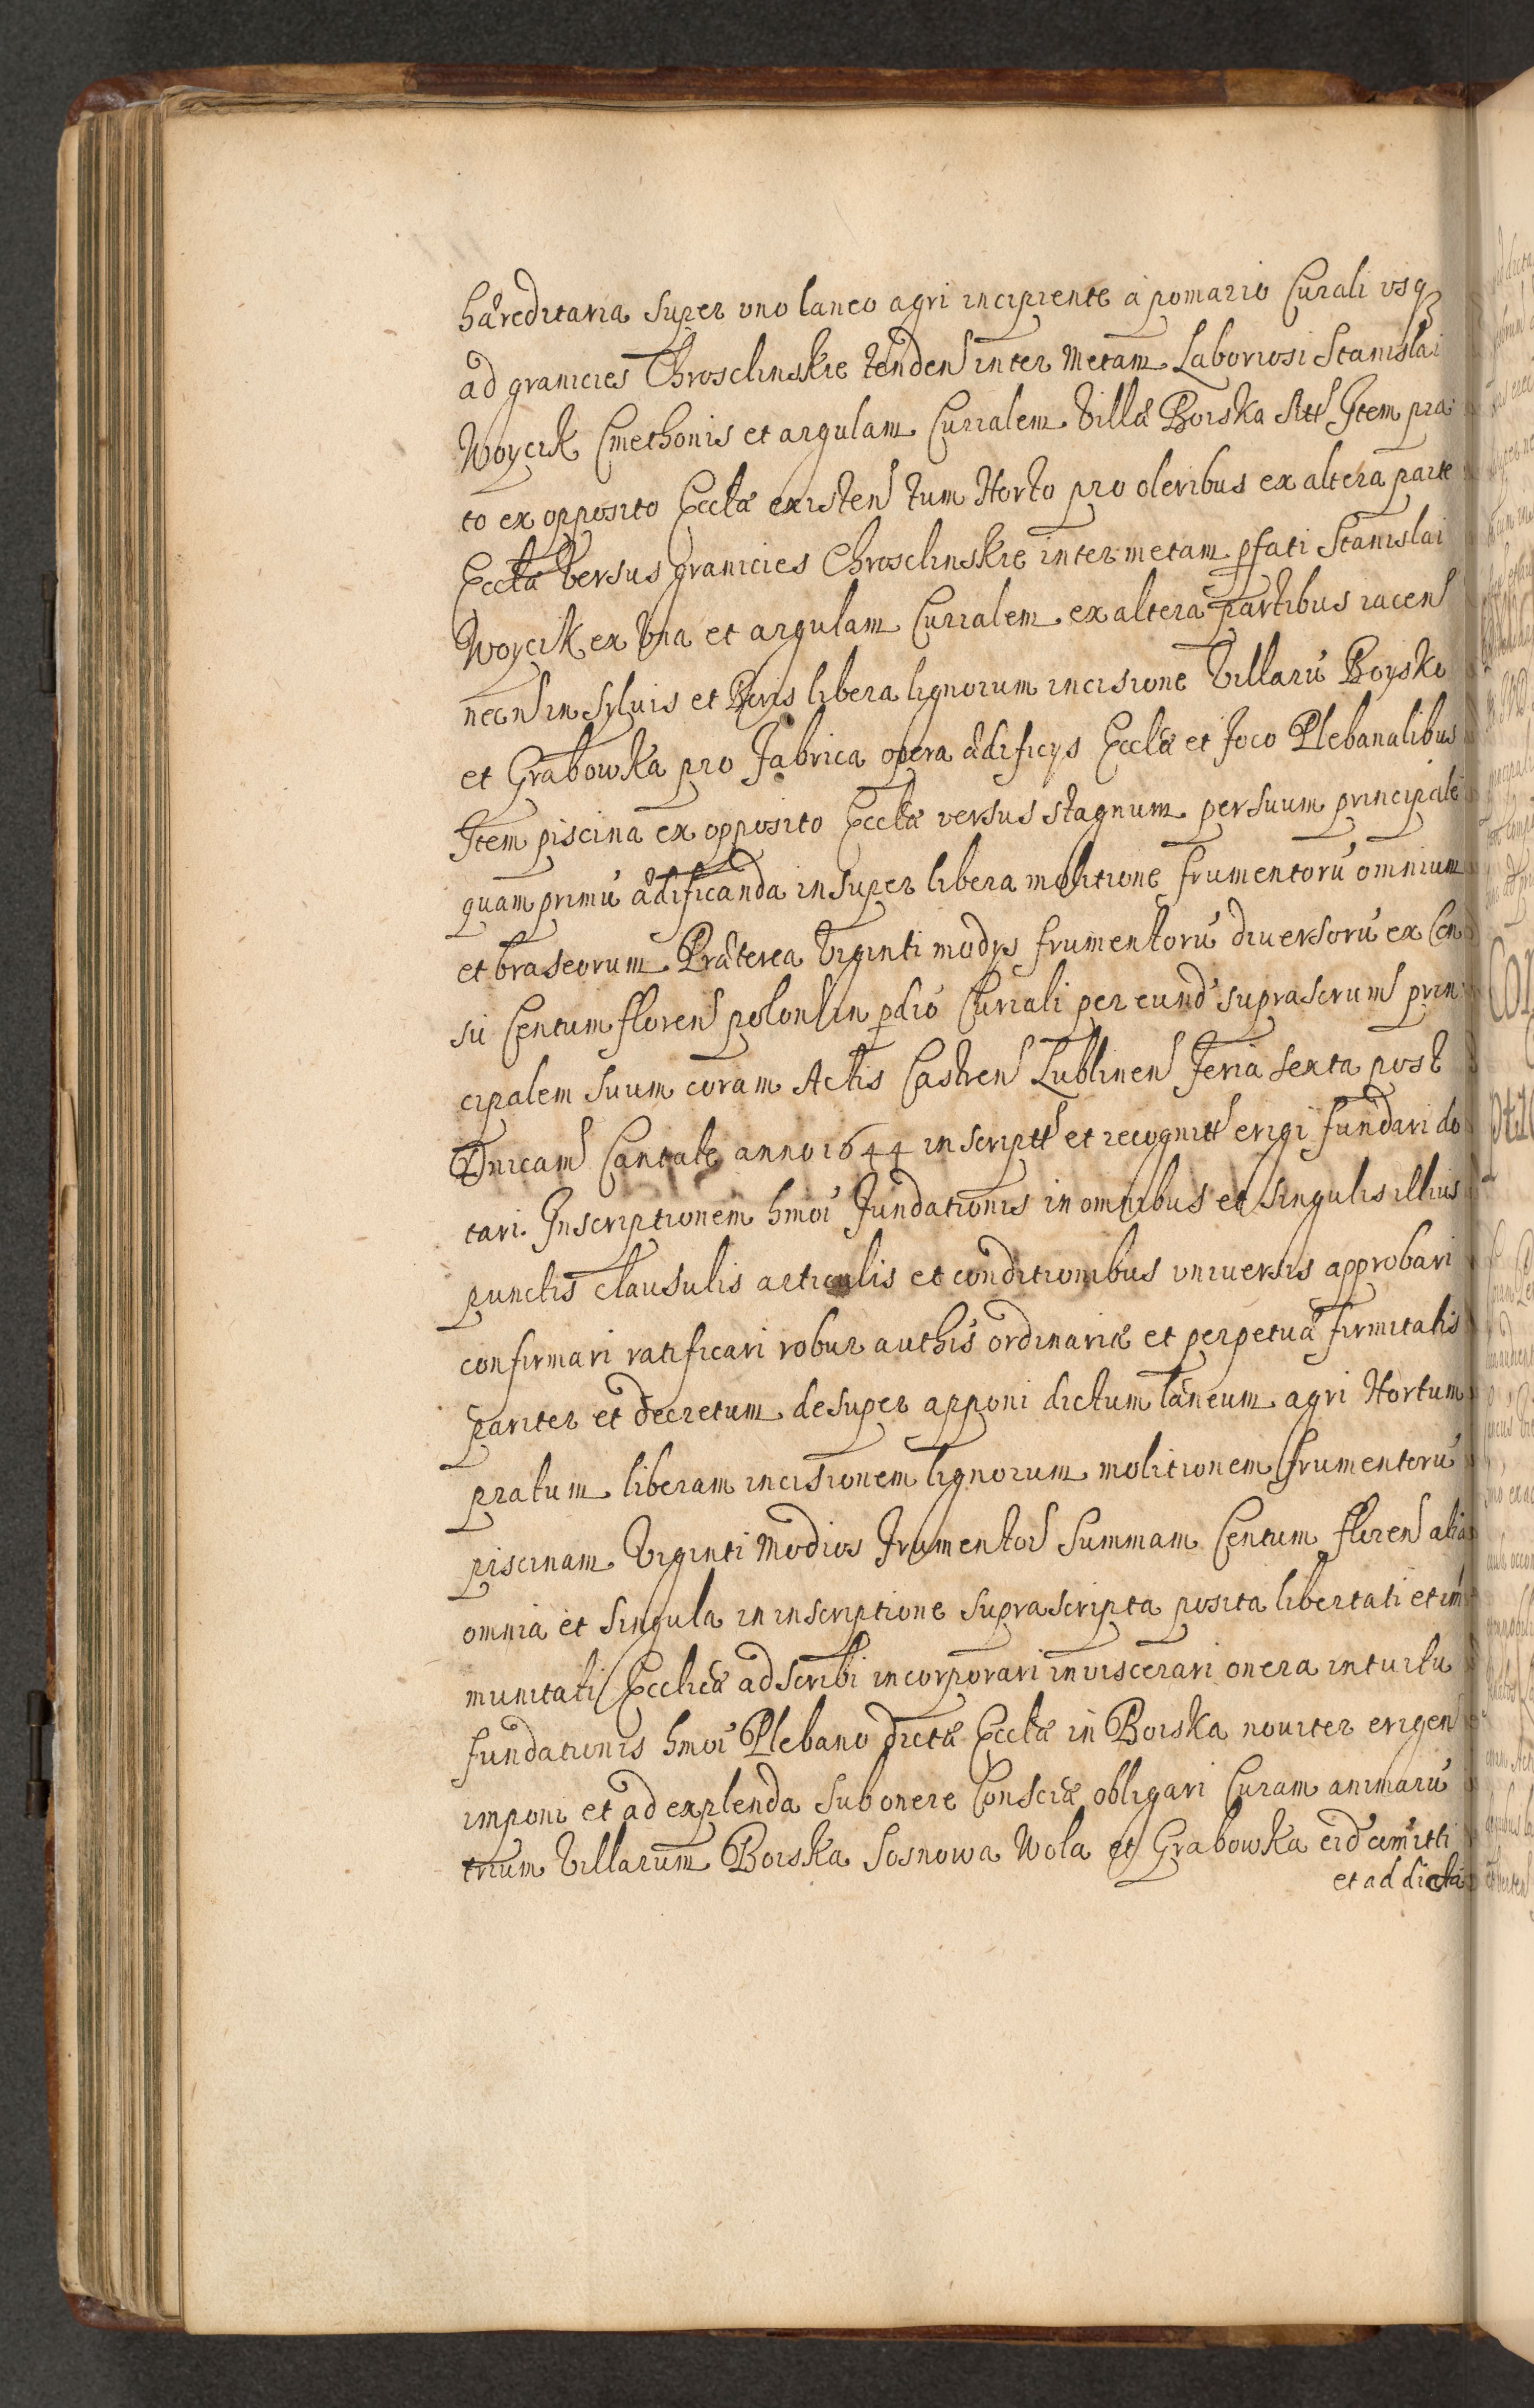 hæreditaria super uno laneo agri incipiente à pomario Curali usq;
ad granicies Chrosclinskie tenden inter Metam Laboriosi Stanislai
Woycik Cmethonis et argulam Curialem Villæ Borska sitt Item pra
to ex opposito Ecclæ existen tum Horto pro oleribus ex altera parte
Ecclæ versus granicies Chrosclinskie inter metam pfati Stanislai
Woycik ex una et argulam Curialem ex altera partibus iacen
necn in syluis et Boris libera lignorum incisione Villarũ Boysko
et Grabowka pro fabrica opera ædificÿs Ecclæ et foco Plebanalibus
Item piscina ex opposito Ecclæ versus stagnum per suum principalẽ
quam primũ ædificanda insuper libera molitione frumentorũ omnium
et braseorum Præterea Viginti modÿs frumentorũ diuersorũ ex Cen
su Centum floren polon in pdio Curiali per eund suprascrum prin
cipalem suum coram Actis Castren Lublinen feria sexta post
Dnicam Cantate anno 1644 in scriptt et recognitt erigi fundari do
tari. Inscriptionem hmoi fundationis in omnibus et singulis illius
punctis clausulis articulis et conditionibus uniuersis approbari
confirmari ratificari robur authis ordinariæ et perpetuæ firmitatis
pariter et decretum desuper apponi dictum laneum agri Hortum
pratum liberam incisionem lignorum molitionem frumentorũ
piscinam Viginti Modios frumentor Summam Centum floren alia
omnia et singula in inscriptione suprascripta posita libertati et im
munitati Ecclicæ adscribi incorporari inviscerari onera intuitu
fundationis hmoi Plebano dictæ Ecclæ in Borska nouiter erigen
imponi et ad explenda sub onere Consciæ obligari Curam animarũ
trium Villarum Borska Sosnowa Wola et Grabowka eid comitti
et ad dictã